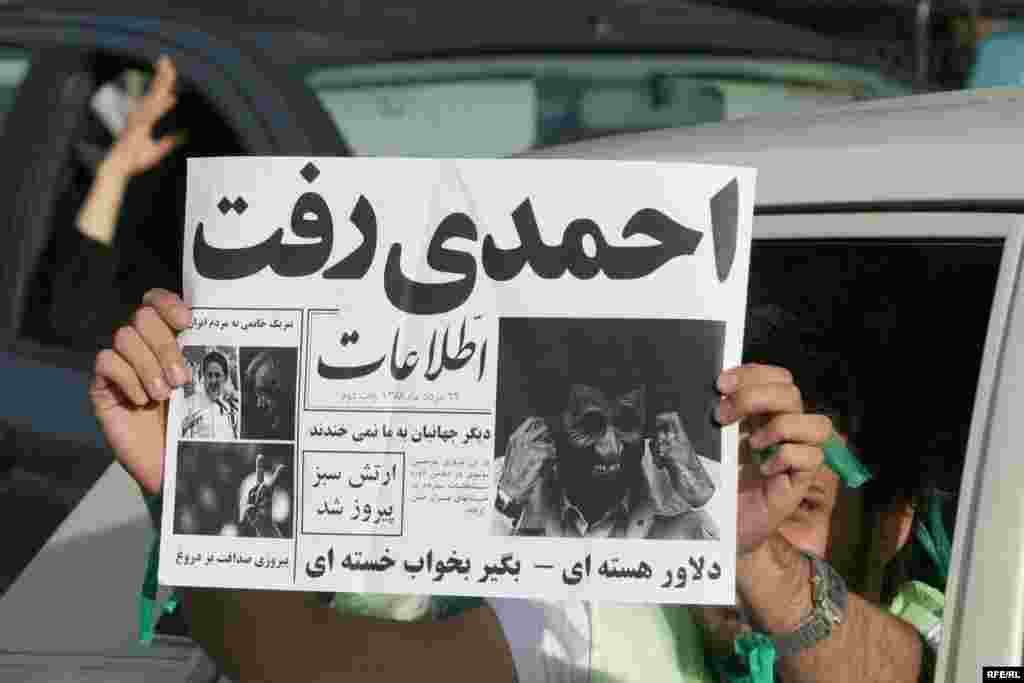 احمدی رفت
اطلاعات
تبریک خاتمی به مردم ایران
دیگر جهانیان به ما نمی خندند
ارتش سبز
پیروز شد
پیروزی صداقت بر دروغ
دلاور هسته ای – بگیر بخواب خسته ای
RFE/RL